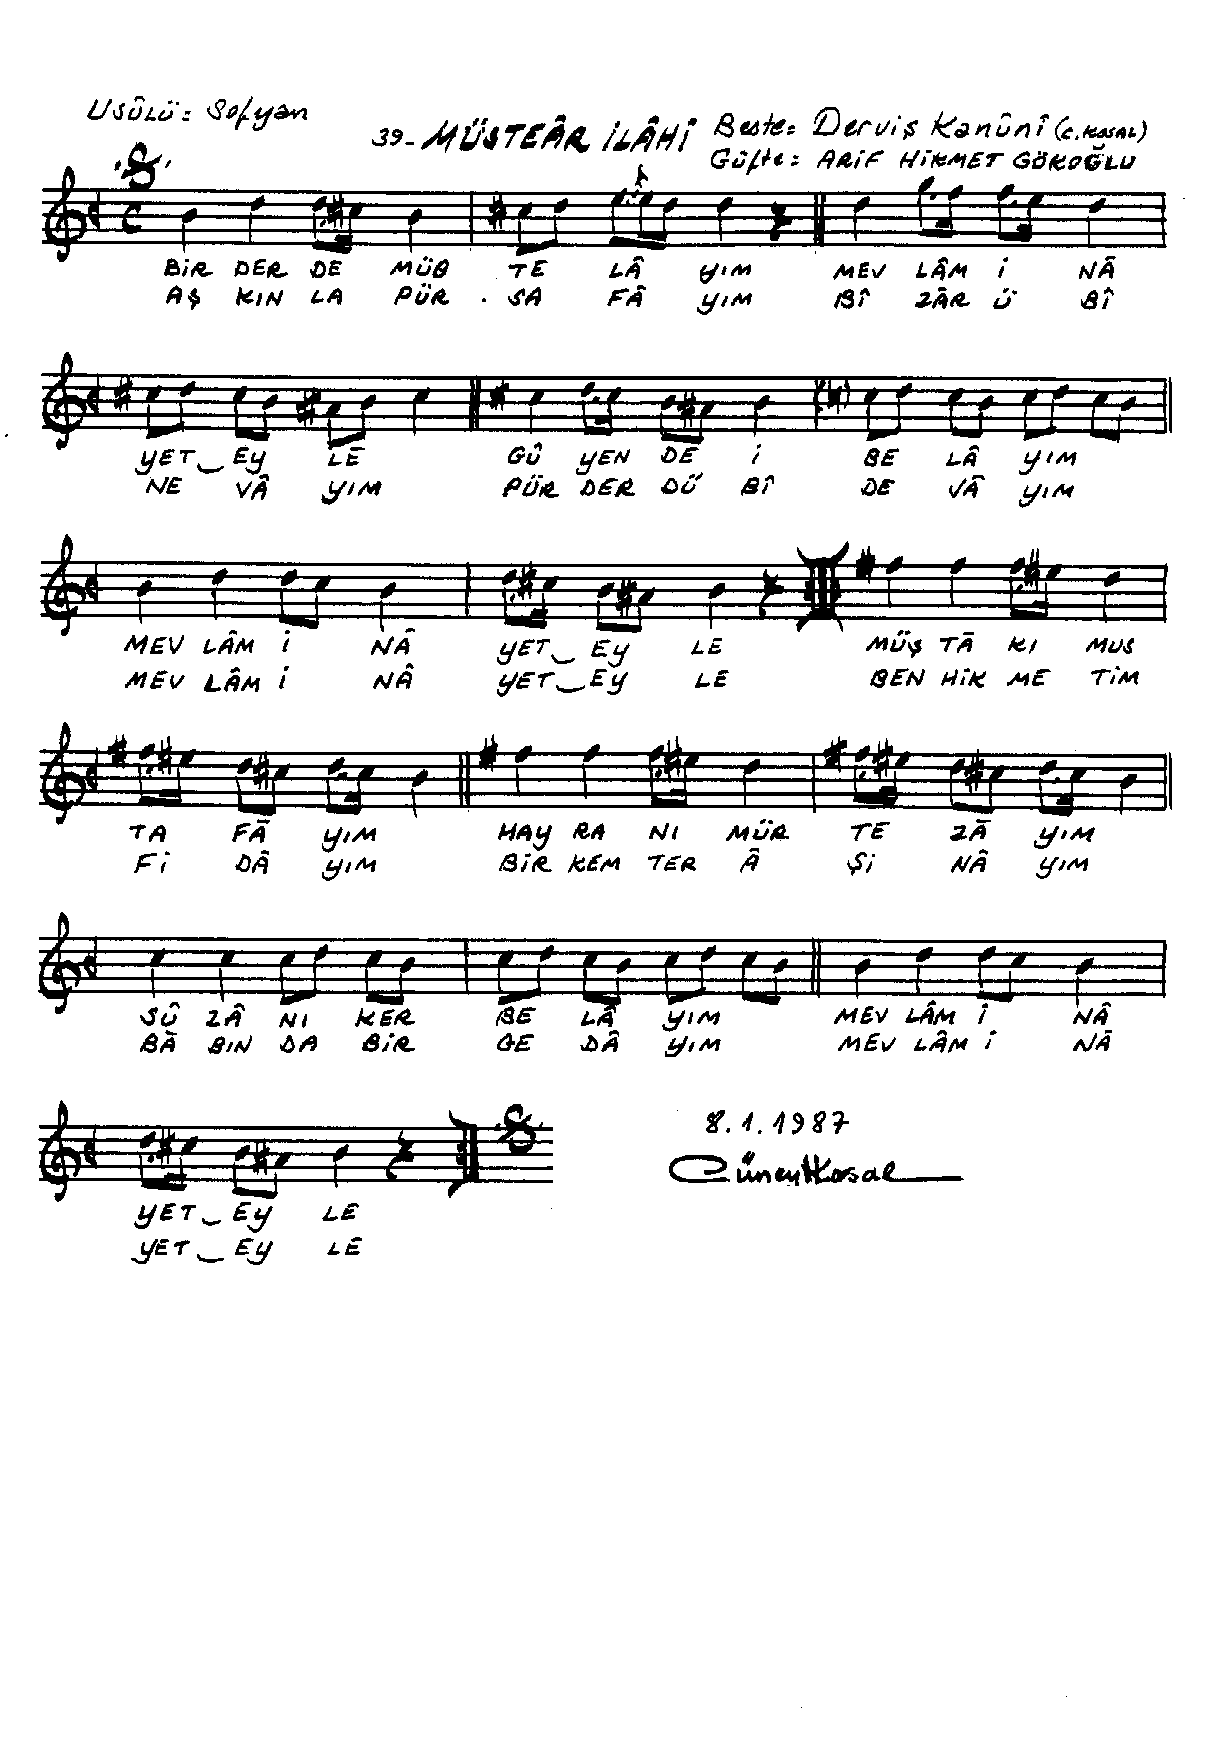 Usûlü: Sofyan
39- MÜSTEÂR İLÂHİ
Beste: Derviş Kanûnî (C. KOSAL)
Güfte: ARİF HİKMET GÖKOĞLU
BİR DER DE MÜB TE LÂ YIM MEV LÂM İ NÂ
AŞ KIN LA PÜR. SA FÂ YIM BÎ ZÂR Ü BÎ
YET_EY LE GÛ YEN DE İ BE LÂ YIM
NE VÂ YIM PÜR DER DÜ BÎ DE VÂ YIM
MEV LÂM İ NÂ YET_EY LE MÜŞ TÂ KI MUS
MEV LÂM İ NÂ YET_EY LE BEN HİK ME TİM
TA FÂ YIM HAY RA NI MÜR TE ZÂ YIM
Fİ DÂ YIM BİR KEM TER Â Şİ NÂ YIM
SÛ ZÂ NI KER BE LÂ YIM MEV LÂM İ NÂ
BÂ BIN DA BİR GE DÂ YIM MEV LÂM İ NÂ
8.1.1987
CüneytKosal
YET_EY LE
YET_EY LE